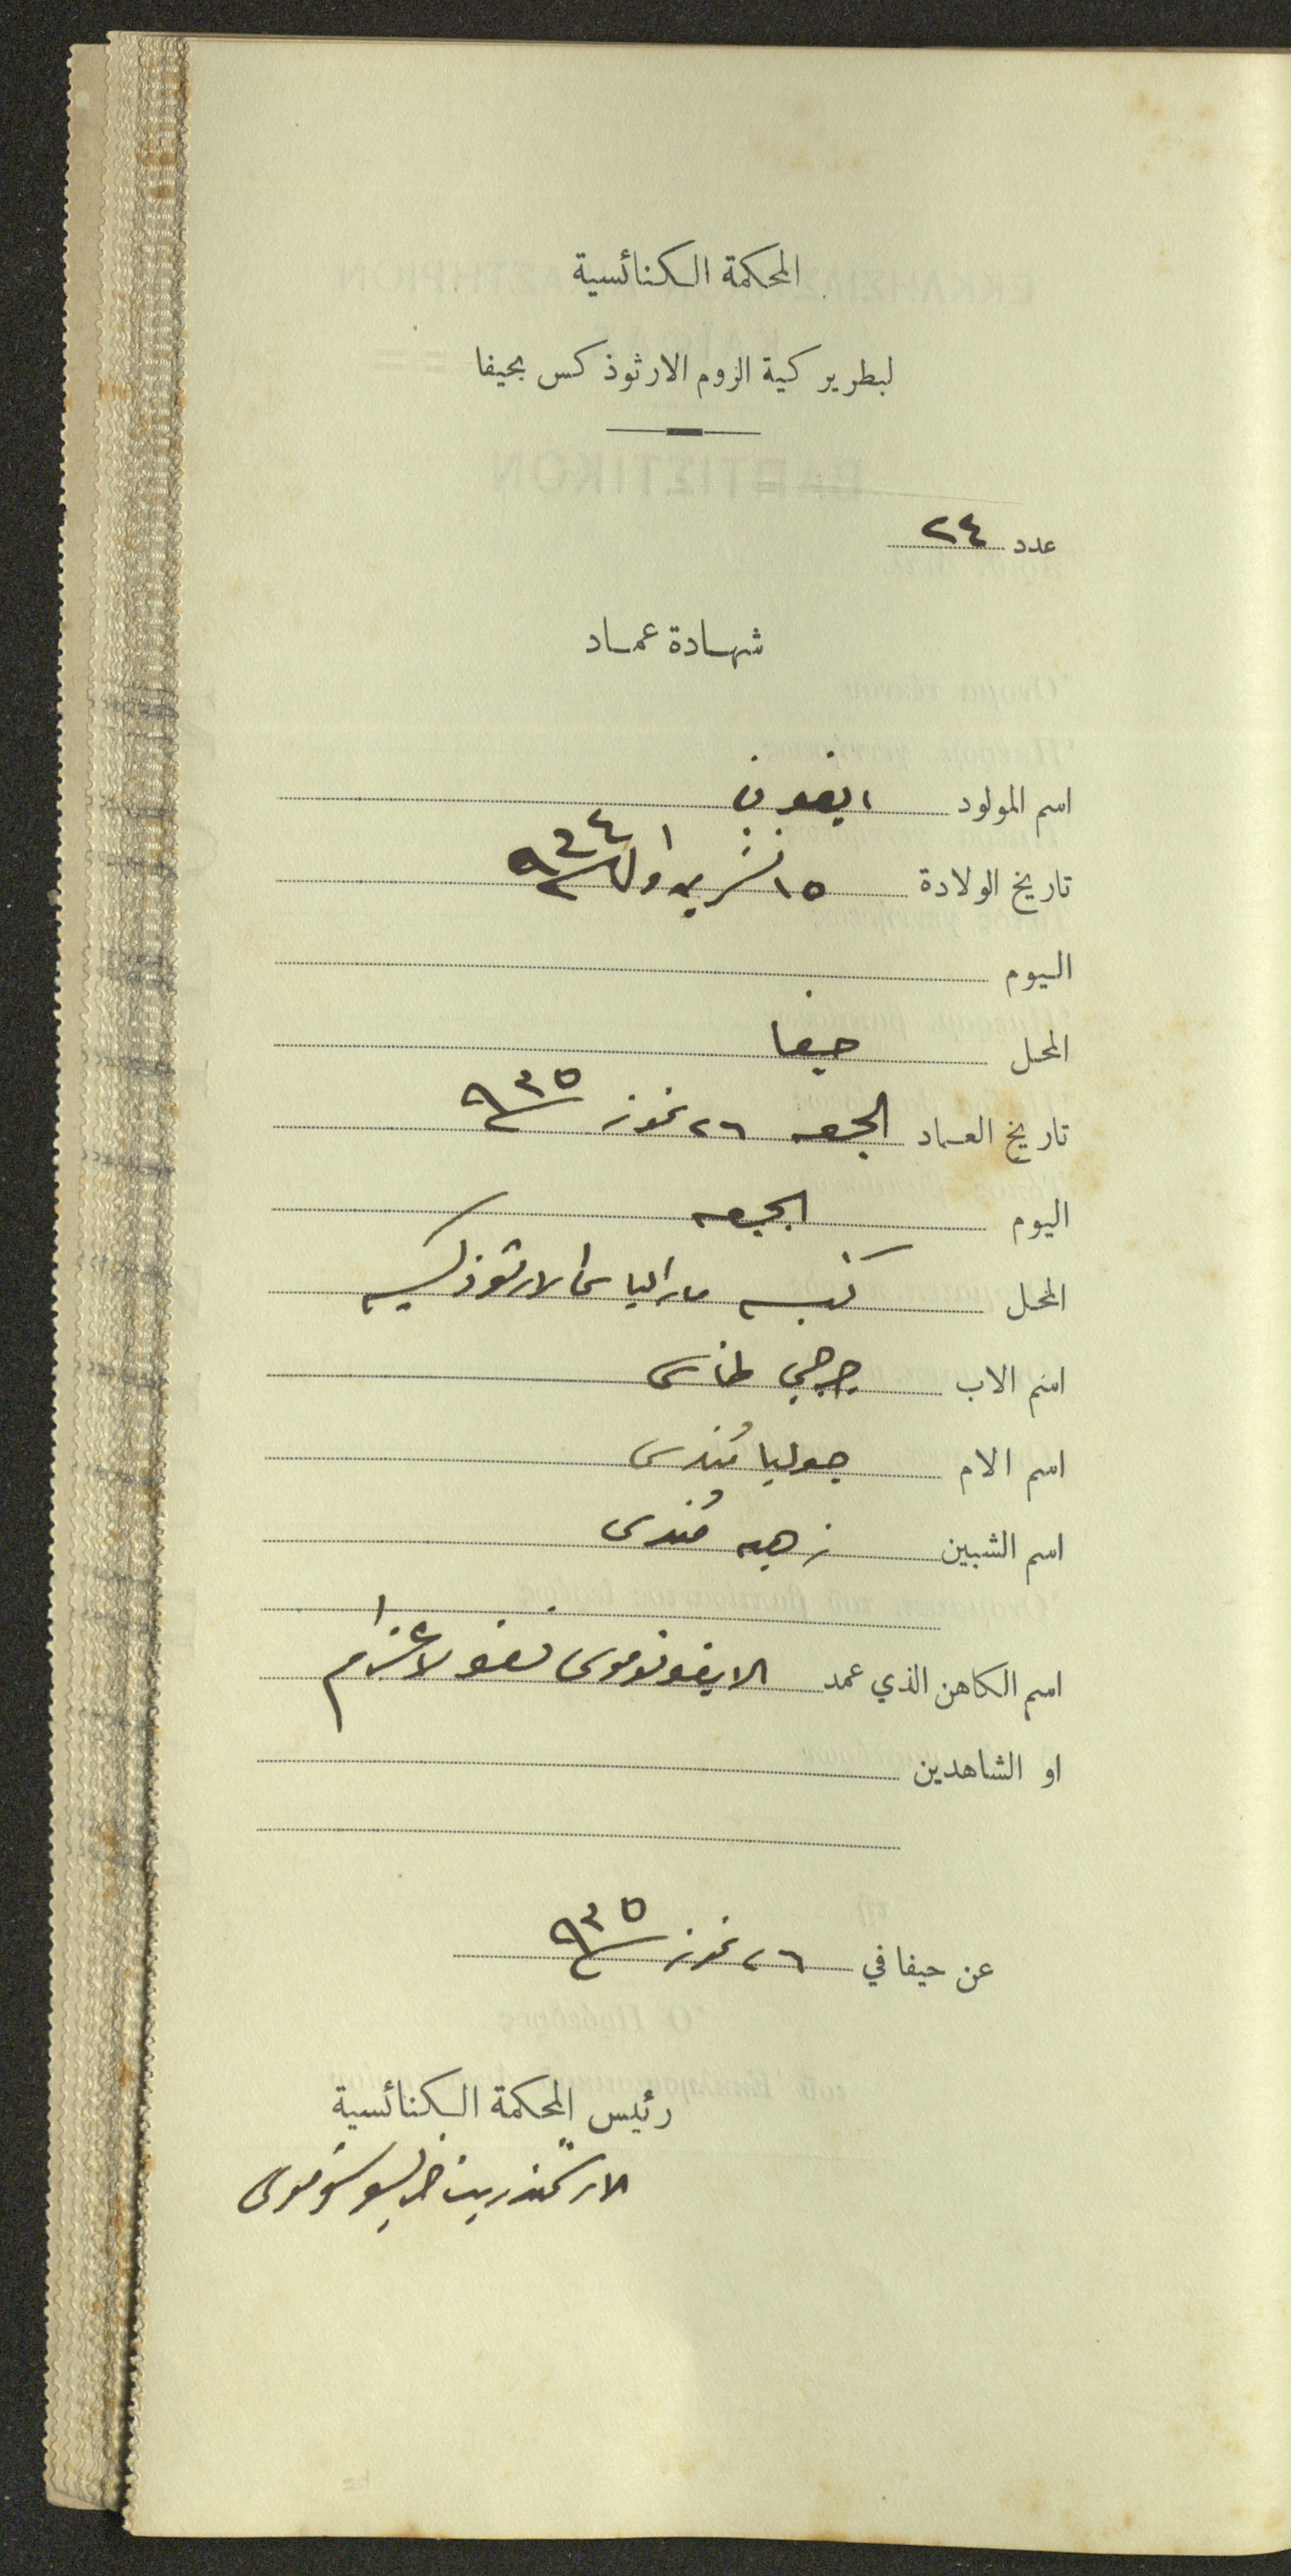 المحكمة الكنائسية
لبطريركية الروم الارثوذكس بحيفا
عدد ٢٤
شهادة عماد
اسم المولود ايفون
تاريخ الولادة ١٥ تشرين اول ٩٣٤
اليوم
المحل حيفا
تاريخ العماد الجمعه ٢٦ تموز ٩٣٥
اليوم الجمعه
المحل كنيسه مار الياس الارثوذكسيه
اسم الاب جرجي طناس
اسم الام جوليا
اسم الشبين زهيه
اسم الكاهن الذي عمد الايقونوموس نقولا
او الشاهدين
عن حيفا في ٢٦ تموز ٩٣٥
رئيس المحكمة الكنائسية
الارشمندريت خريسوستوموس